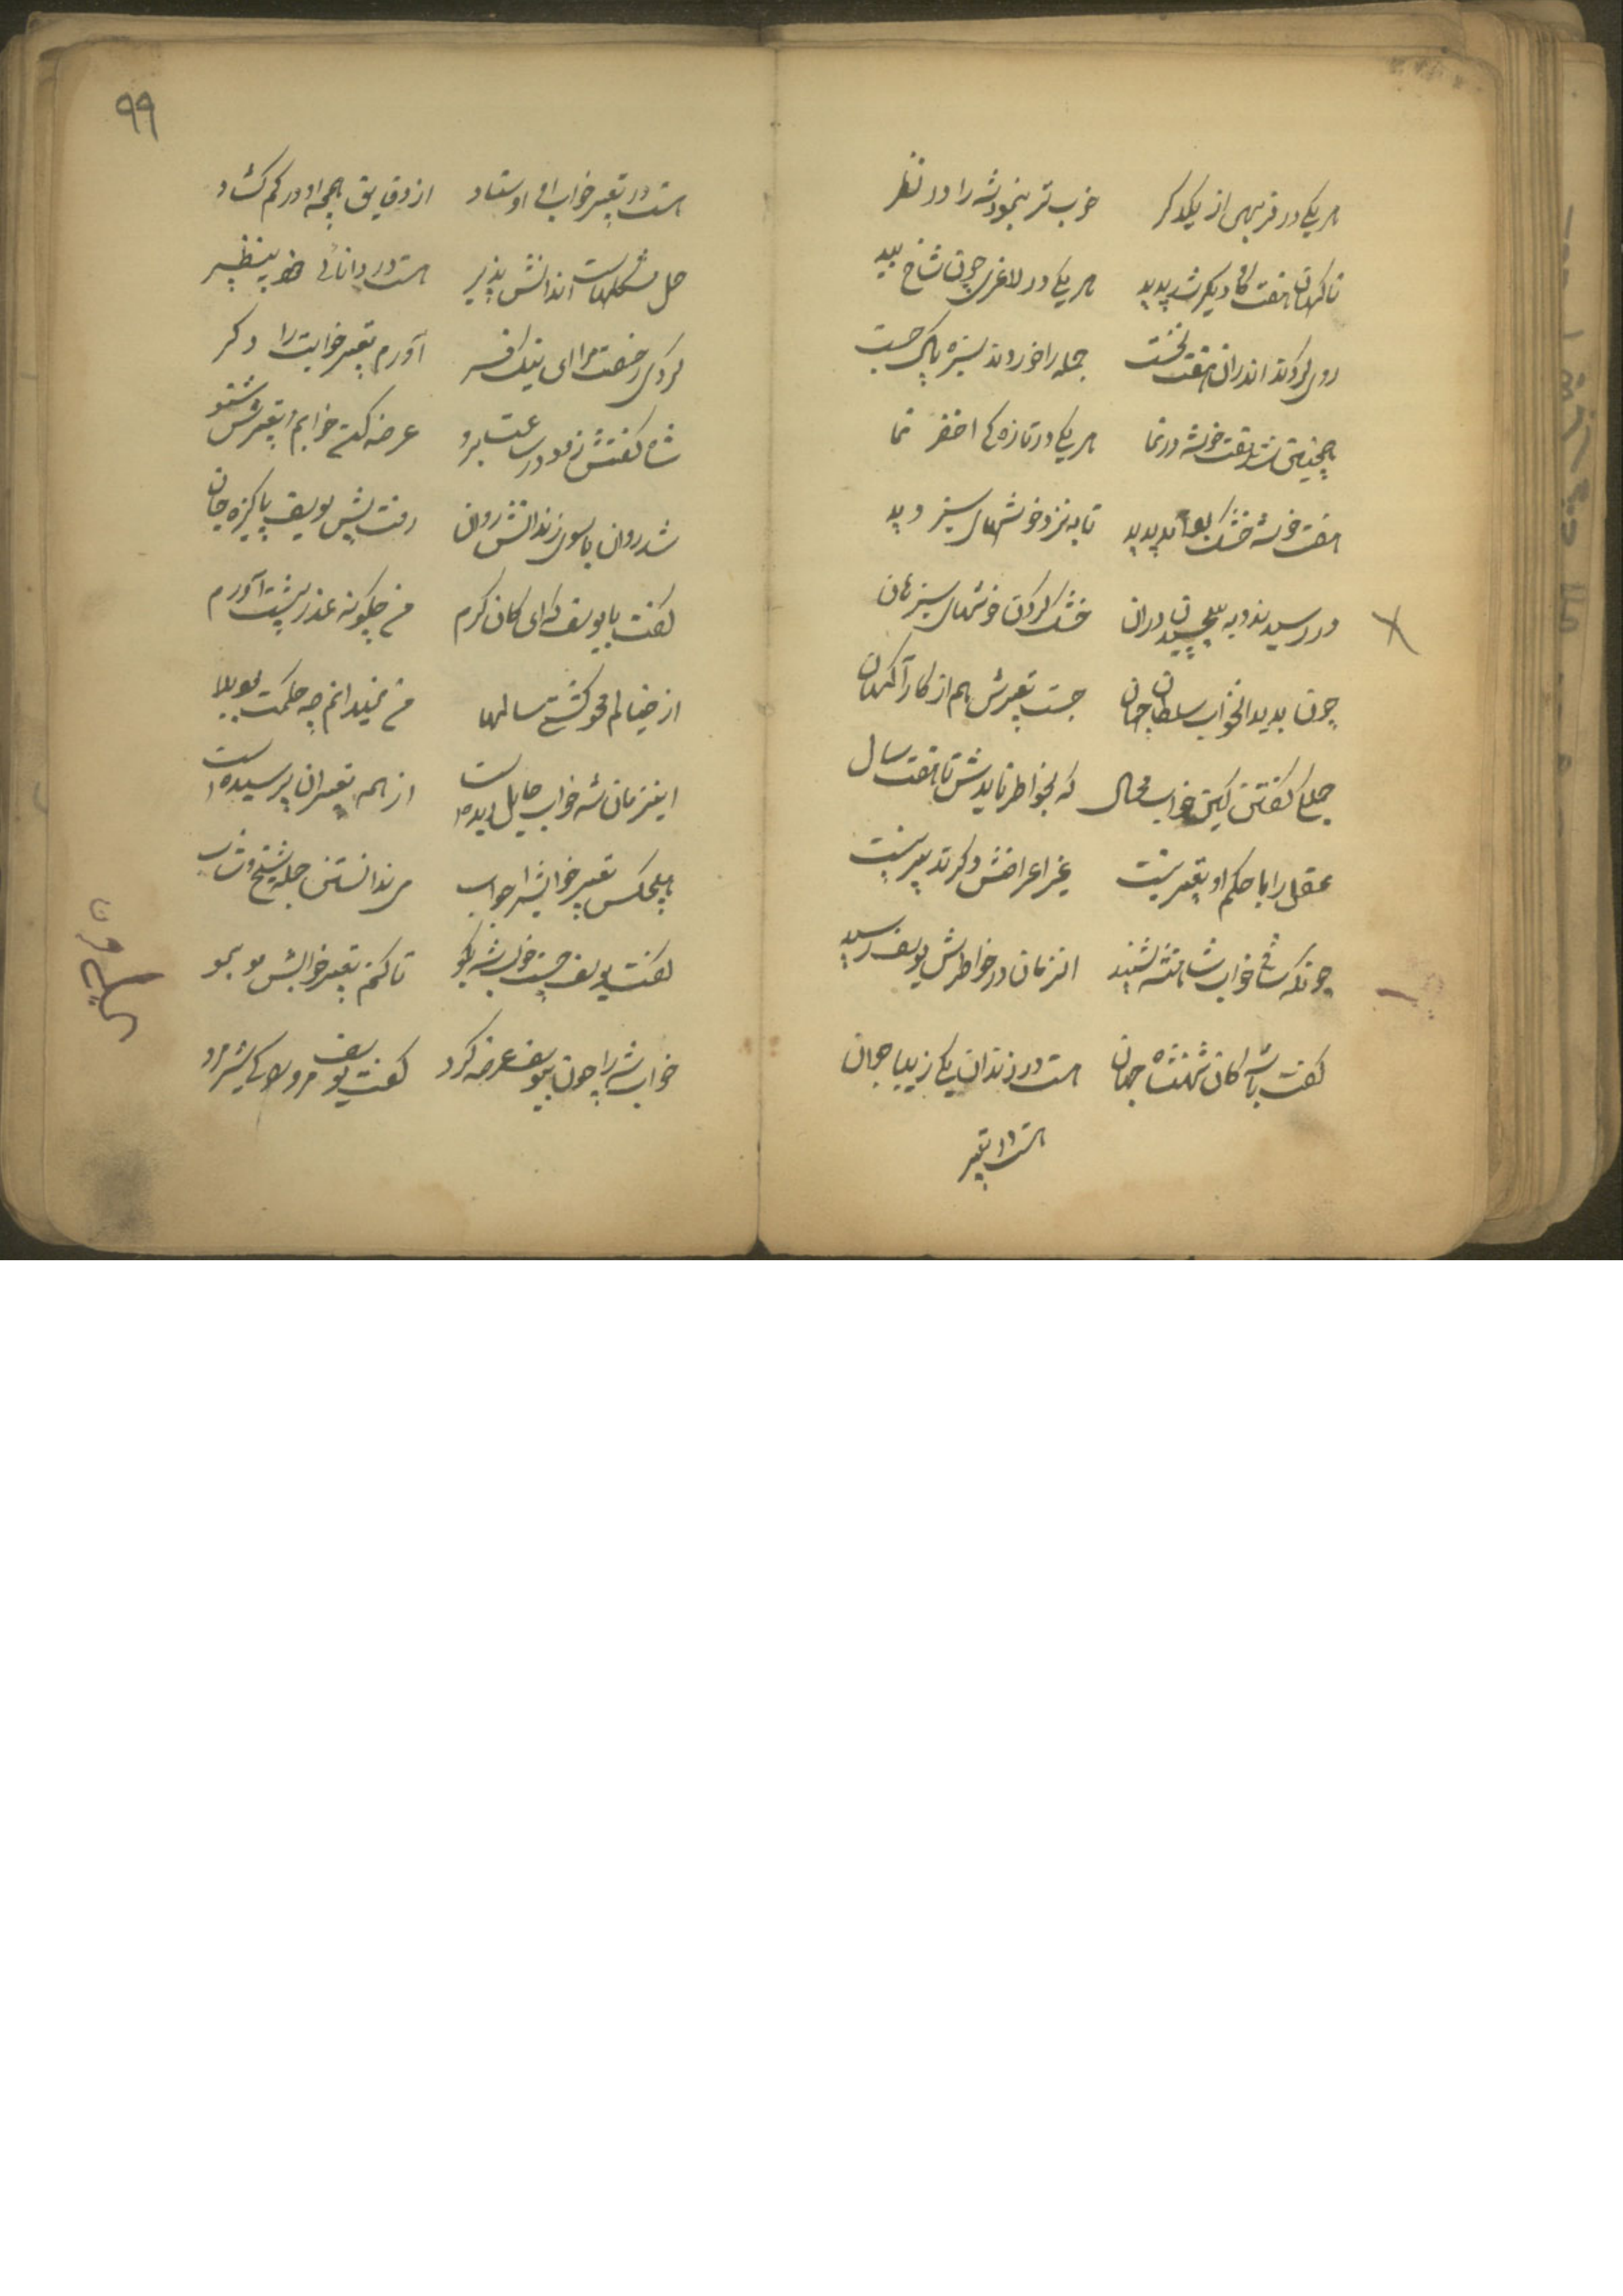 هر یکی در فربهی از یکدگر خوب تر بنمود شه را در نظر
ناگهان هفت گاو دیگر شد پدید هر یکی در لاغری چون شاخ بید
روی کردند اندران هفت نخست جمله را خوردند سبزه پاک جست
همچنین شد هفت خوشه در نما هر یکی در تازه کی اخضر نما
هفت خوشه خشک پدید تا به نزد خوشهای سبز دید
در رسیدند و به پیچیدن دران خشک کردن خوشهای سبز مان
چون بدید انخواب سلطان جهان جست تعبیرش هم از کار آگهان
جمله گفتن کین خواب محال که بخواطر نایدش تا هفت سال
عقل را با حکم او تعبیر نیست غیر اعراضش دگر تدبیر نیست
چونکه خواب شاهنشه شنید انزمان در خواطرش یوسف رسید
گفت با شه کان شهنشاه جهان هست در زندان یکی زیبا جوان
هست در تعبیر
۹۹
هست در تعبیر خواب او اوستاد از دقایق همچه او در کم کشاد
حل مشکلهاست اندانش پذیر هست در دانائی خود بینظیر
کر دهی رخصت مرا ای نیک افسر آورم تعبیر خوابت را دکر
شاه گفتش زود در ساعت برو عرضه کن خوابم و تعبیرش شنو
شد روان با سوی زندانش روان رفت پیش یوسف پاکیزه جان
گفت با یوسف که ای کان کرم من چکونه عذر پیشت آورم
از خیالم محو کشتی سالها من نمیدانم چه حکمت بود
اینزمان شه خواب هایل دیده است از همه تعبیران پرسیده است
هیچکس تعبیر خوابش را جواب می ندانستن جمله شیخ و شاب
گفت یوسف چیست خواب شه بگو تا کنم تعبیر خوابش مو بمو
خواب شه را چون بیوسف عرضه کرد گفت یوسف مرو را کای شیر مرد